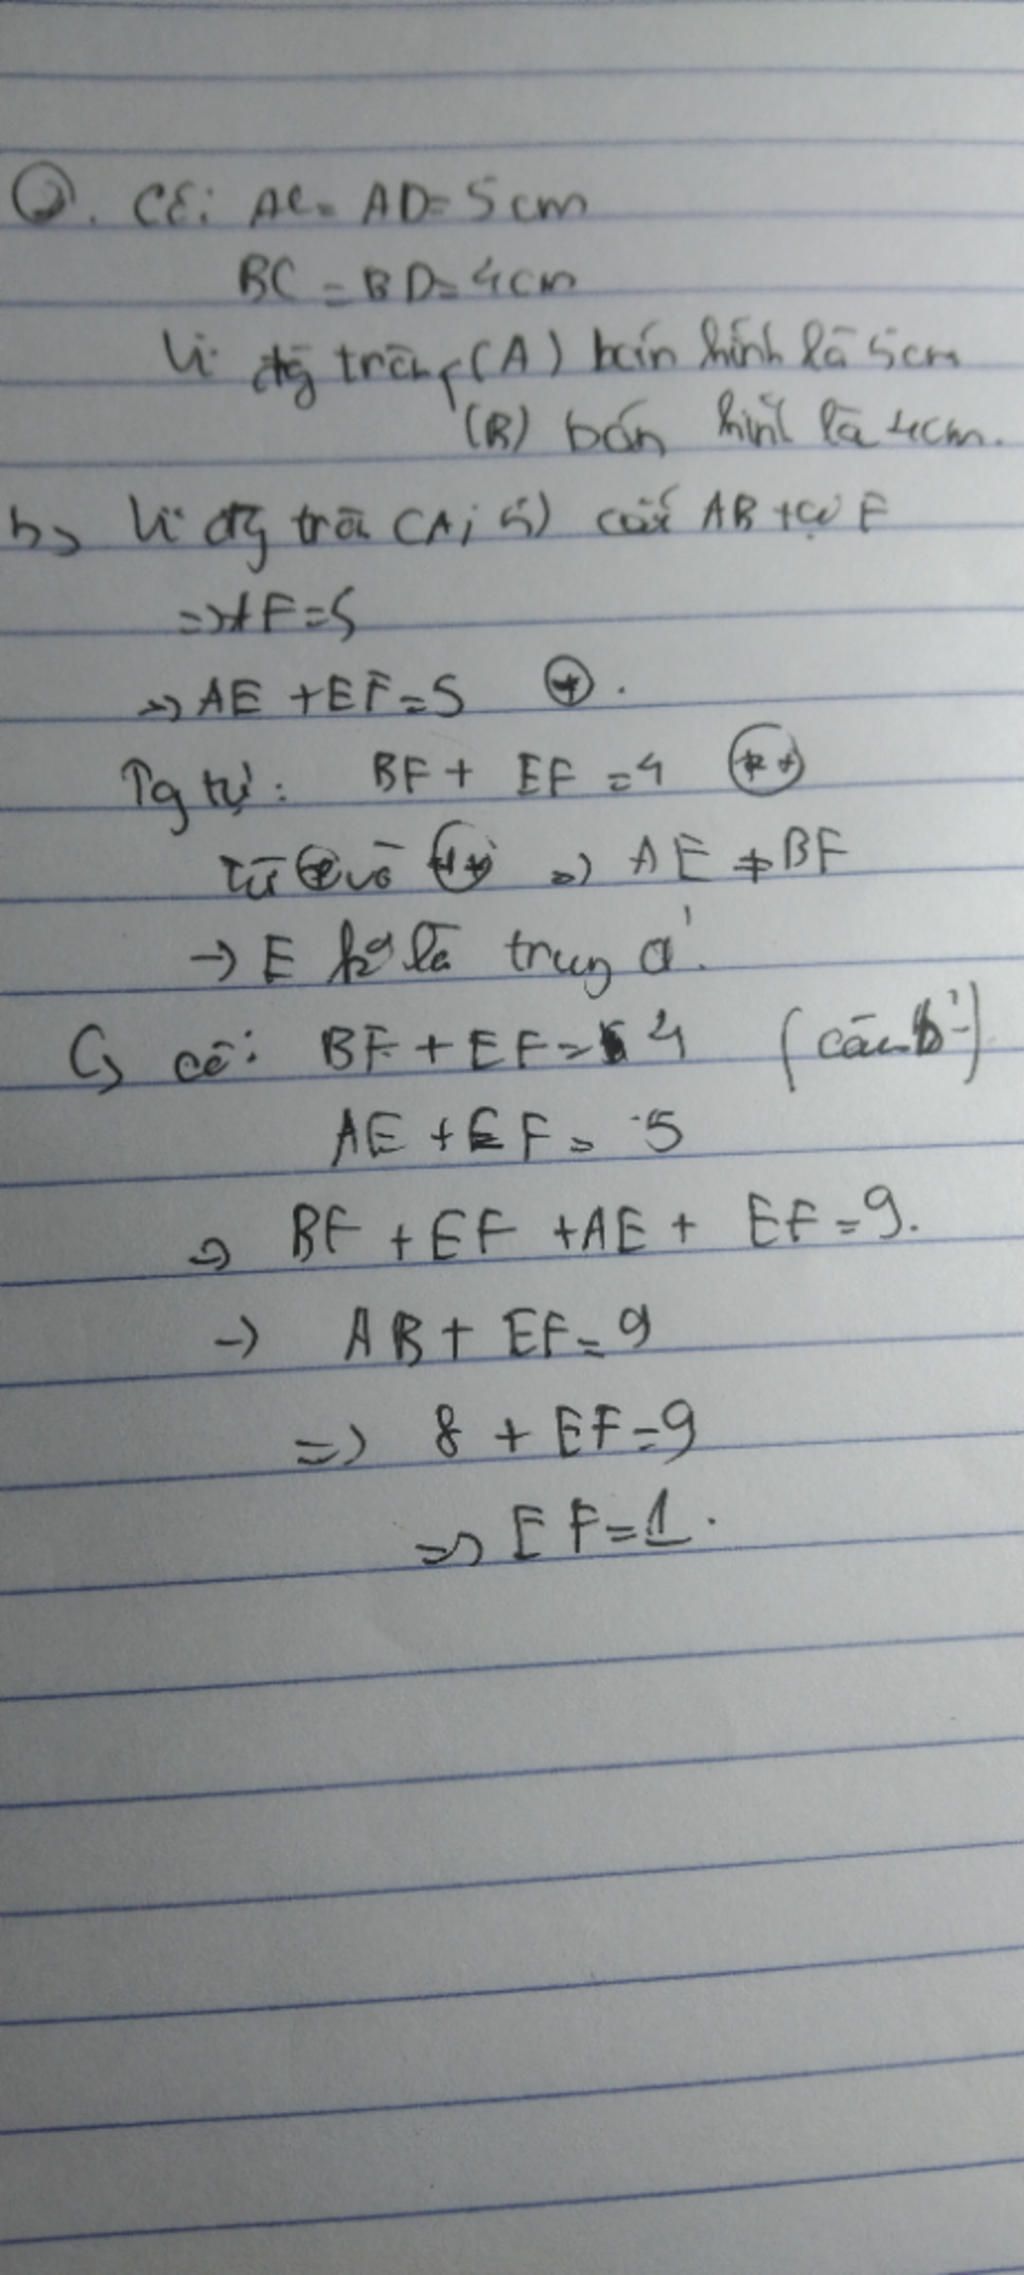 a. Có: AC = AD = 5cm
BC = BD = 4cm
Vì đg tròn (A) bán kính là 5cm
(B) bán kính là 4cm.
b, Vì đg tròn (A; 5) cắt AB tại F
=> AF = 5
=> AE + EF = 5 (*).
Tg tự: BF + EF = 4 (**)
từ (*) và (**) => AE ≠ BF
-> E kg là trung đ'.
C, có: BF + EF = 4 (câu b)
AE + EF = 5
=> BF + EF + AE + EF = 9.
-> AB + EF = 9
=> 8 + EF = 9
=> EF = 1.